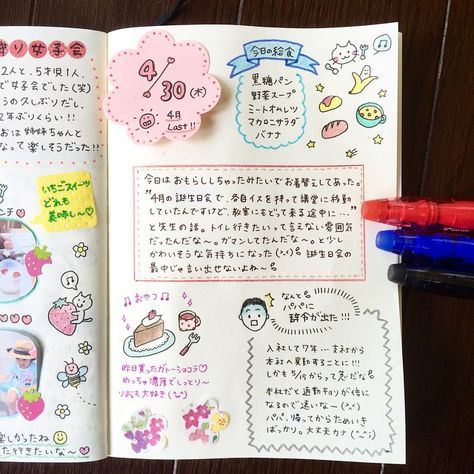 り女子会
2人と、5才頃1人、
で女子会でした(笑)
うの久しぶりだし、
2年ぶりくらい!!
おは姉妹ちゃんと
なって楽しそうだった!!
いちごスイーツ
どれも
美味し〜♡
楽しかったね
た行きたいな〜
4/30(木)
4月
Last!!
今日の給食
黒糖パン
野菜スープ
ミートオムレツ
マカロニサラダ
バナナ
今日はおもらししちゃったみたいでお着替えしてあった。
"4月の誕生日会で、各自イスを持って講堂に移動
していたんですけど、教室にもどって来る途中に…"
と先生の話。トイレ行きたいって言えない雰囲気
だったんだな〜。ガマンしてたんだな〜。と少し
かわいそうな気持ちになった(>_<) 誕生日会の
最中じゃ言い出せないよね〜
♫おやつ♪
昨日買ったガトーショコラ♡
めっちゃ濃厚でしっとり〜
りおも大好き(^_^)
なんと
パパに
辞令が出た!!!
入社して7年…支社から
本社へ異動することに!!!
しかも5/15からって急だな
本社だと通勤キョリが倍に
なるので遠いな〜
パパ、帰ってからため息
ばっかり。大丈夫カナ